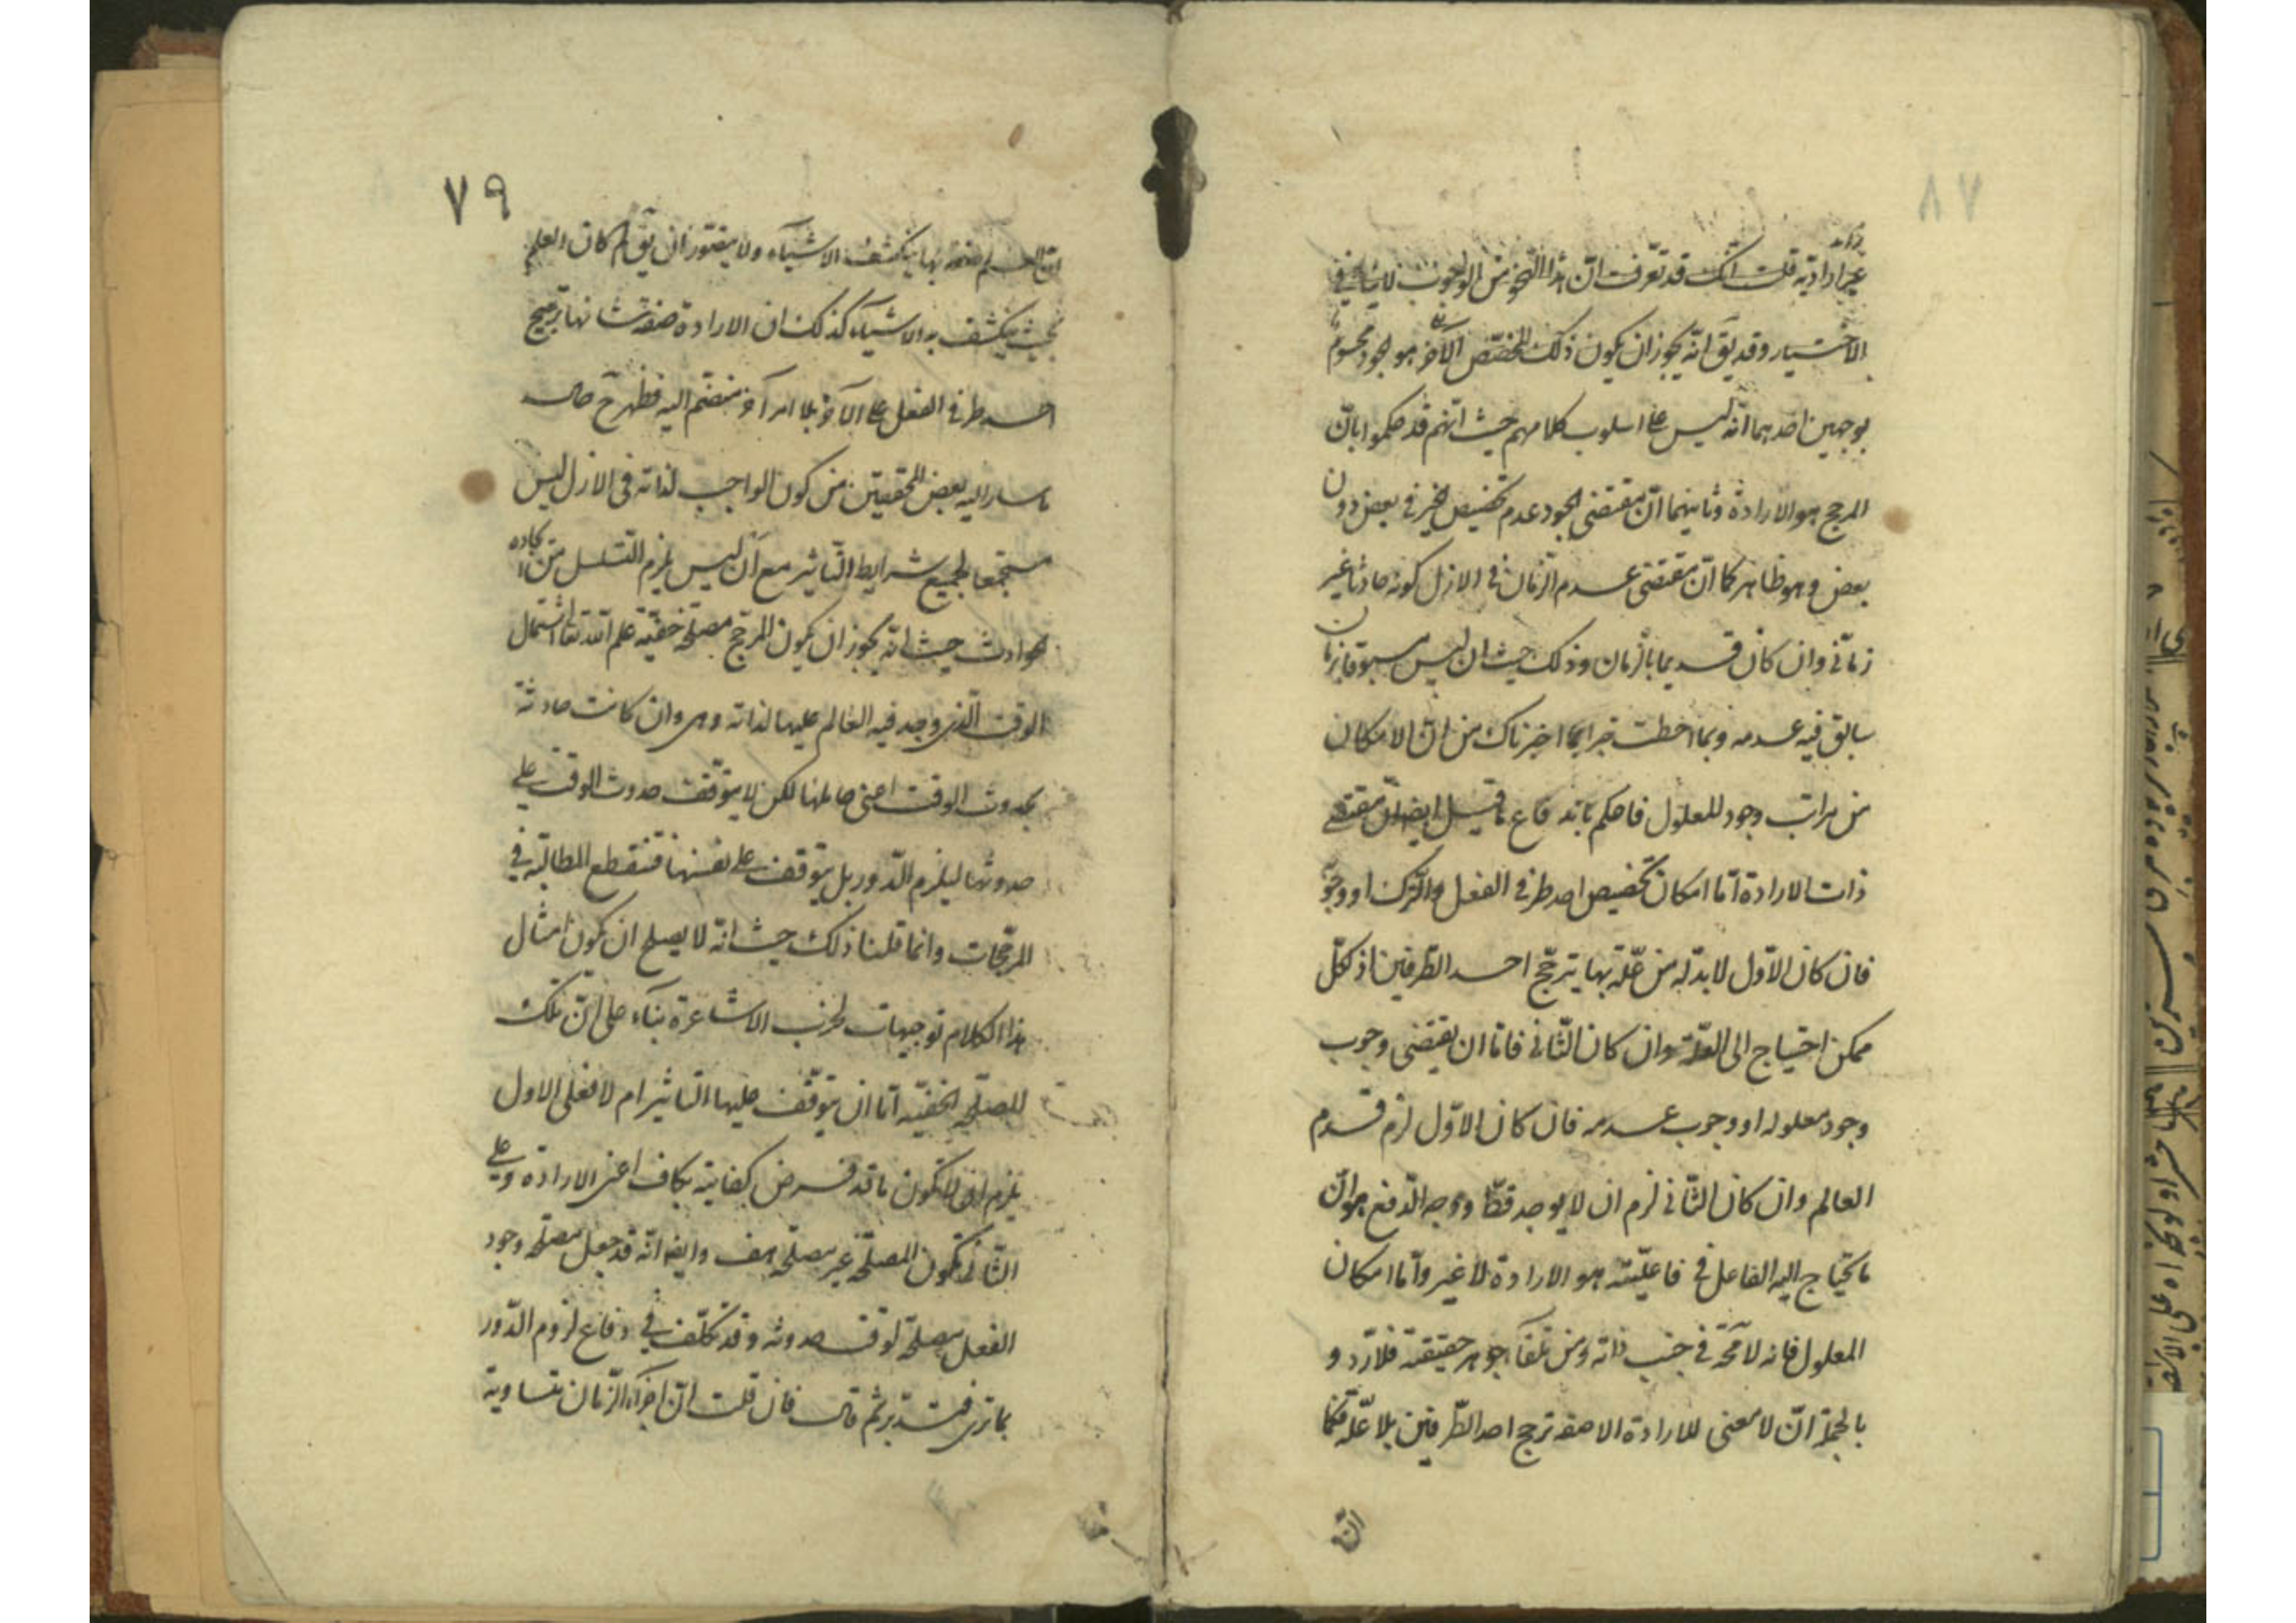 ٧٨
زائد
غير ارادية قلت انك قد تعرفت ان هذا النحو من الوجوب لا ينافي
الاختيار وقد يق انه يجوز ان يكون ذلك المخصص الآخر هو الجود
بوجهين احدهما انه ليس على اسلوب كلامهم حيث انهم قد حكموا بان
المرجح هو الارادة وثانيهما ان مقتضى الجود عدم تخصيص الخير في بعض دون
بعض وهو ظاهر كما ان مقتضى عدم الزمان في الازل كونه حادثا غير
زماني وان كان قديما بالزمان وذلك حيث ان ليس مسبوقا بزمان
سابق فيه عدمه وبما احطت خبرا بما اخبرناك من ان الامكان
من مراتب وجود المعلول فاحكم باندفاع ما قيل ايضا ان مقتضى
ذات الارادة اما امكان تخصيص احد طرفي الفعل والترك او وجوبه
فان كان الاول لا بد له من علة بها يترجح احد الطرفين اذ لكل
ممكن احتياج الى العلة وان كان الثاني فاما ان يقتضي وجوب
وجود معلوله او وجوب عدمه فان كان الاول لزم قدم
العالم وان كان الثاني لزم ان لا يوجد قط ووجه الدفع هو ان
ما يحتاج اليه الفاعل في فاعليته هو الارادة لا غير واما امكان
المعلول فانه لا محة في جنب ذاته ومن تلقاء جوهر حقيقته فلا ترد و
بالجملة ان لا معنى للارادة الا صفة ترجح احد الطرفين بلا علة فكما
ان
٧٩
ان العلم صفة بها ينكشف الاشياء ولا يتصور ان يق لم كان العلم
بحيث ينكشف به الاشياء كذلك ان الارادة صفة شانها ترجيح
احد طرفي الفعل على الآخر بلا امر آخر منضم اليه فظهر ح حال
ما سار اليه بعض المحققين من كون الواجب لذاته في الازل ليس
مستجمعا لجميع شرايط التاثير مع ان ليس يلزم التسلسل من
الحوادث حيث انه يجوز ان يكون المرجح مصلحة خفية علم الله تعالى اشتمال
الوقت الذي وجد فيه العالم عليها لذاته وهي وان كانت حادثة
بحدوث الوقت اعني حاملها لكن لا يتوقف حدوث الوقت على
حدوثها ليلزم الدور بل يتوقف على نفسها فتنقطع المطالبة في
المرجحات وانما قلنا ذلك حيث انه لا يصلح ان يكون امثال
هذا الكلام توجيهات لحزب الاشاعرة بناء على ان تلك
المصلحة الخفية اما ان يتوقف عليها التاثير ام لا فعلى الاول
يلزم ان لا يكون ما قد فرض كفايته بكاف اعني الارادة وعلى
الثاني تكون المصلحة غير مصلحة هف وايضا انه قد جعل مصلحة وجود
الفعل مصلحة لوقت حدوثه وقد تكلف في دفاع لزوم الدور
بما ترى فتدبر ثم قال فان قلت ان اجزاء الزمان متساوية